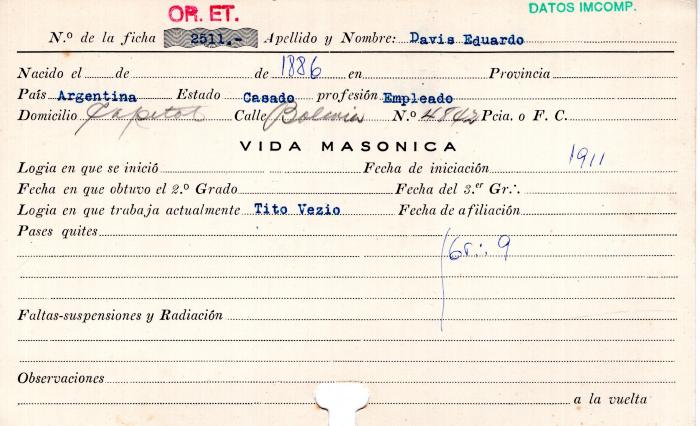 OR. ET.
DATOS IMCOMP.
N.º de la ficha 2511.- Apellido y Nombre: Davis Eduardo
Nacido el de de 1886 en Provincia
País Argentina Estado Casado profesión Empleado
Domicilio Capital Calle Bolivia N.º 4842 Pcia. o F. C.
VIDA MASONICA
Logia en que se inició Fecha de iniciación 1911
Fecha en que obtuvo el 2.º Grado Fecha del 3.er Gr∴
Logia en que trabaja actualmente Tito Vezio Fecha de afiliación
Pases quites
Gr∴ 9
Faltas-suspensiones y Radiación
Observaciones
a la vuelta